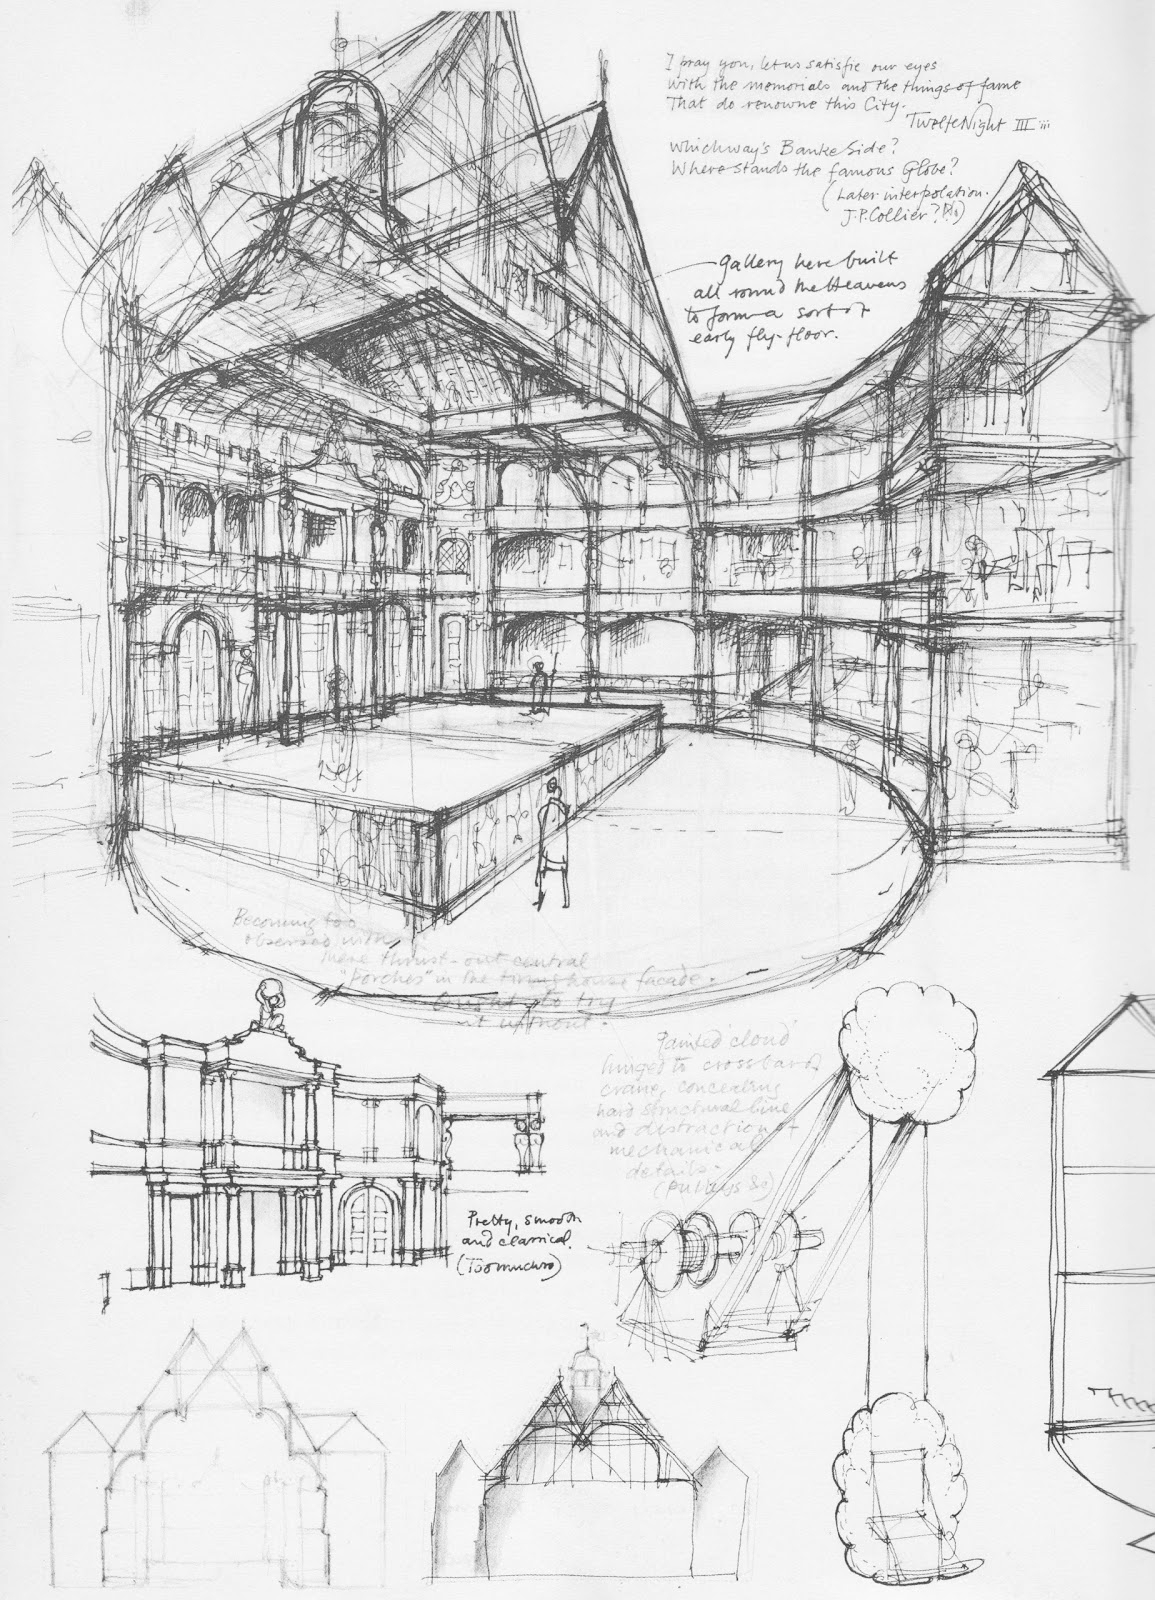 I pray you, let us satisfie our eyes
with the memorials and the things of fame
That do renowne this City.
Twelfe Night III iii
which way's Banke Side?
Where stands the famous Globe?
(Later interpolation.
J.P. Collier?
gallery here built
all round the Heavens
to form a sort of
early fly-floor.
Becoming too
obsessed with
these thrust-out central
"Porches" in the tiring house facade.
Ought to try
it upfront.
Painted 'cloud'
hinged to crossbar of
crane, concealing
hard structural line
and distraction of
mechanical
details.
Pretty, smooth
and classical.
(Too much so)